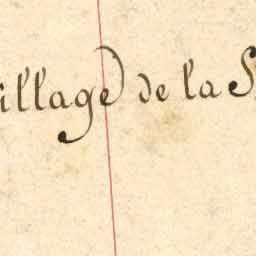 illage de la S